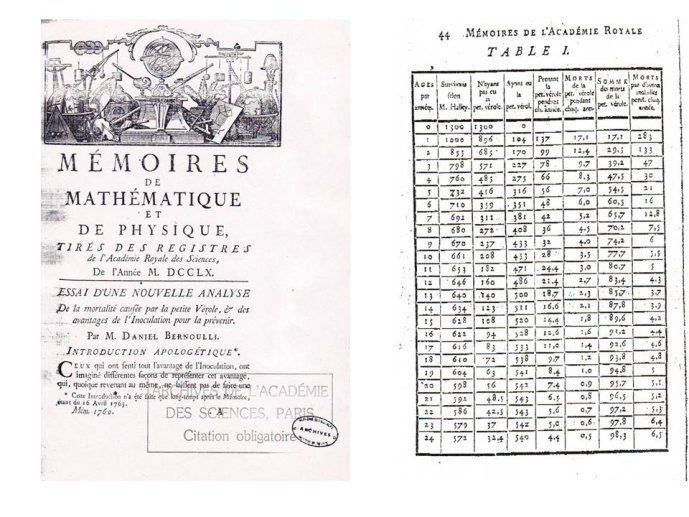 MÉMOIRES
DE
MATHÉMATIQUE
ET
DE PHYSIQUE,
TIRÉS DES REGISTRES
de l'Académie Royale des Sciences,
De l'Année M. DCCLX.
ESSAI D'UNE NOUVELLE ANALYSE
De la mortalité causée par la petite Vérole, & des
avantages de l'Inoculation pour la prévenir.
Par M. DANIEL BERNOULLI.
INTRODUCTION APOLOGÉTIQUE*.
CEUX qui ont senti tout l'avantage de l'Inoculation, ont
imaginé différentes façons de représenter cet avantage,
qui, quoique revenant au même, ne laissent pas de faire une
* Cette Introduction n'a été faite que long-temps après le Mémoire,
étant du 16 Avril 1765.
Mém. 1760. A
ARCHIVES DE L'ACADÉMIE
DES SCIENCES, PARIS
Citation obligatoire
ARCHIVES
44 MÉMOIRES DE L'ACADÉMIE ROYALE
TABLE I.
AGES par années. Survivans selon M. Halley. N'ayant pas eu la pet. vérole. Ayant eu la pet. vérol. Prenant la pet. vérole pendant ch. année. MORTS de la pet. vérole pendant chaq. ann. SOMME des morts de la pet. vérole. MORTS par d'autres maladies pend. chaq. année.
0 1300 1300 0
1 1000 896 104 137 17,1 17,1 283
2 855 685 170 99 12,4 29,5 133
3 798 571 227 78 9,7 39,2 47
4 760 485 275 66 8,3 47,5 30
5 732 416 316 56 7,0 54,5 21
6 710 359 351 48 6,0 60,5 16
7 692 311 381 42 5,2 65,7 12,8
8 680 272 408 36 4,5 70,2 7,5
9 670 237 433 32 4,0 74,2 6
10 661 208 453 28 3,5 77,7 5,5
11 653 182 471 24,4 3,0 80,7 5
12 646 160 486 21,4 2,7 83,4 4,3
13 640 140 500 18,7 2,3 85,7 3,7
14 634 123 511 16,6 2,1 87,8 3,9
15 628 108 520 14,4 1,8 89,6 4,2
16 622 94 528 12,6 1,6 91,2 4,4
17 616 83 533 11,0 1,4 92,6 4,6
18 610 72 538 9,7 1,2 93,8 4,8
19 604 63 541 8,4 1,0 94,8 5
20 598 56 542 7,4 0,9 95,7 5,1
21 592 48,5 543 6,5 0,8 96,5 5,2
22 586 42,5 543 5,6 0,7 97,2 5,3
23 579 37 542 5,0 0,6 97,8 6,4
24 572 32,4 540 4,4 0,5 98,3 6,5